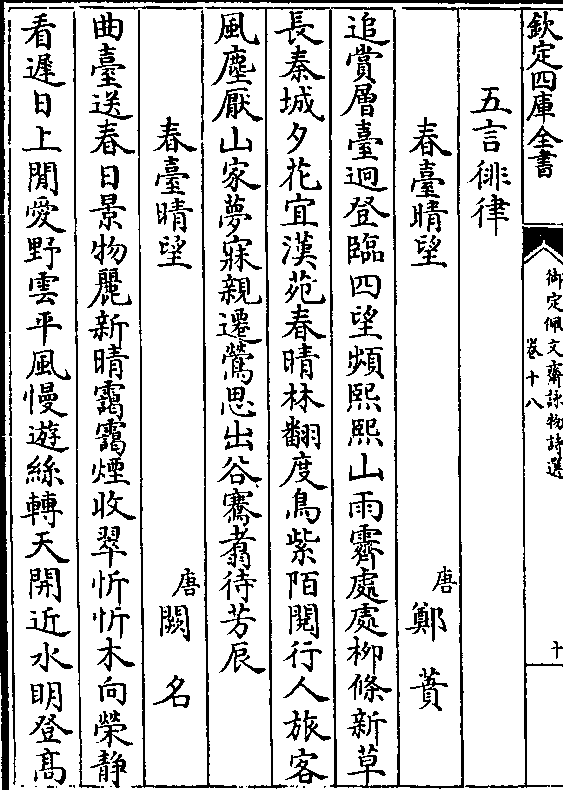 欽定四庫全書
御定佩文齋詠物詩選
卷十八
十
五言徘律
春臺晴望
唐鄭蕡
追賞層臺迥登臨四望頻熙熙山雨霽處處柳條新草
長秦城夕花宜漢苑春晴林翻度鳥紫陌閱行人旅客
風塵厭山家夢寐親遷鶯思出谷騫翥待芳辰
春臺晴望
唐闕名
曲臺送春日景物麗新晴靄靄煙收翠忻忻木向榮靜
看遲日上閒愛野雲平風慢遊絲轉天開近水明登髙